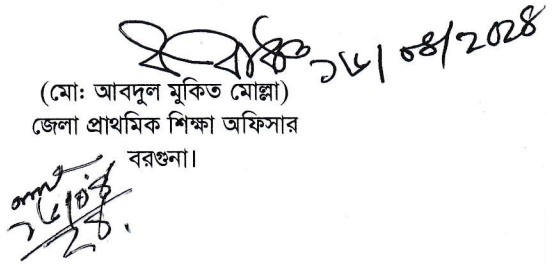 ১৮/০৪/২০২৪
(মো: আবদুল মুকিত মোল্লা)
জেলা প্রাথমিক শিক্ষা অফিসার
বরগুনা।